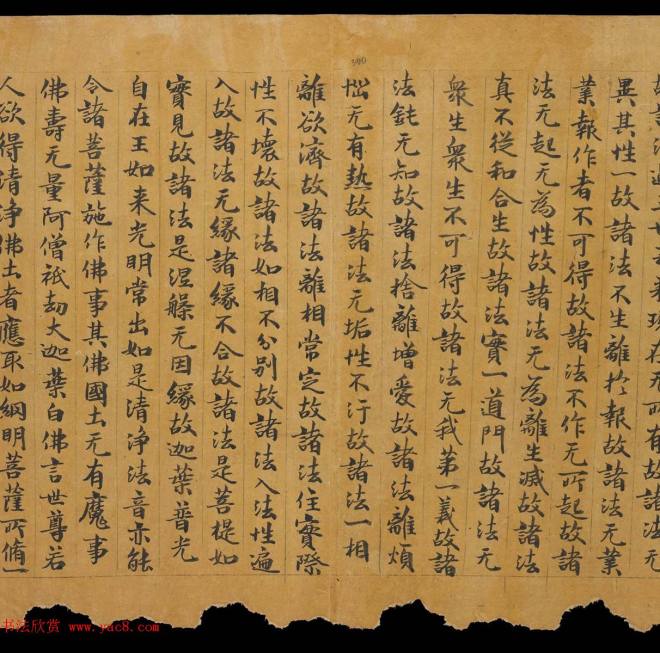 現在无所有故諸法无
異其性一故諸法不生離於報故諸法无業
業報作者不可得故諸法不作无所起故諸
法无起无為性故諸法无為離生滅故諸法
真不從和合生故諸法實一道門故諸法无
衆生衆生不可得故諸法无我第一義故諸
法鈍无知故諸法捨離增愛故諸法離煩
惱无有熱故諸法无垢性不汙故諸法一相
離欲濟故諸法離相常定故諸法住實際
性不壞故諸法如相不分別故諸法入法性遍
入故諸法无緣諸緣不合故諸法是菩提如
實見故諸法是涅槃无因緣故迦葉普光
自在王如来光明常出如是清淨法音亦能
令諸菩薩施作佛事其佛國土无有魔事
佛壽无量阿僧祇劫大迦葉白佛言世尊若
人欲得清淨佛土者應取如網明菩薩所脩
书法欣赏 www.yac8.com